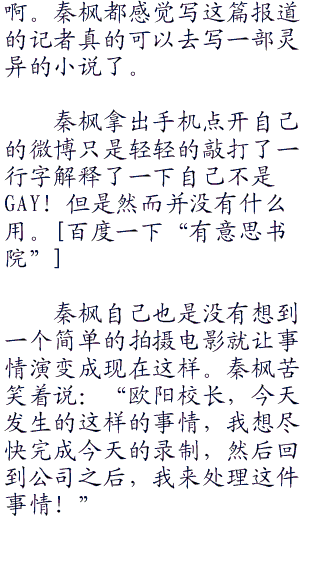 啊。秦枫都感觉写这篇报道
的记者真的可以去写一部灵
异的小说了。
秦枫拿出手机点开自己
的微博只是轻轻的敲打了一
行字解释了一下自己不是
GAY！但是然而并没有什么
用。[百度一下“有意思书
院”]
秦枫自己也是没有想到
一个简单的拍摄电影就让事
情演变成现在这样。秦枫苦
笑着说：“欧阳校长，今天
发生的这样的事情，我想尽
快完成今天的录制，然后回
到公司之后，我来处理这件
事情！”